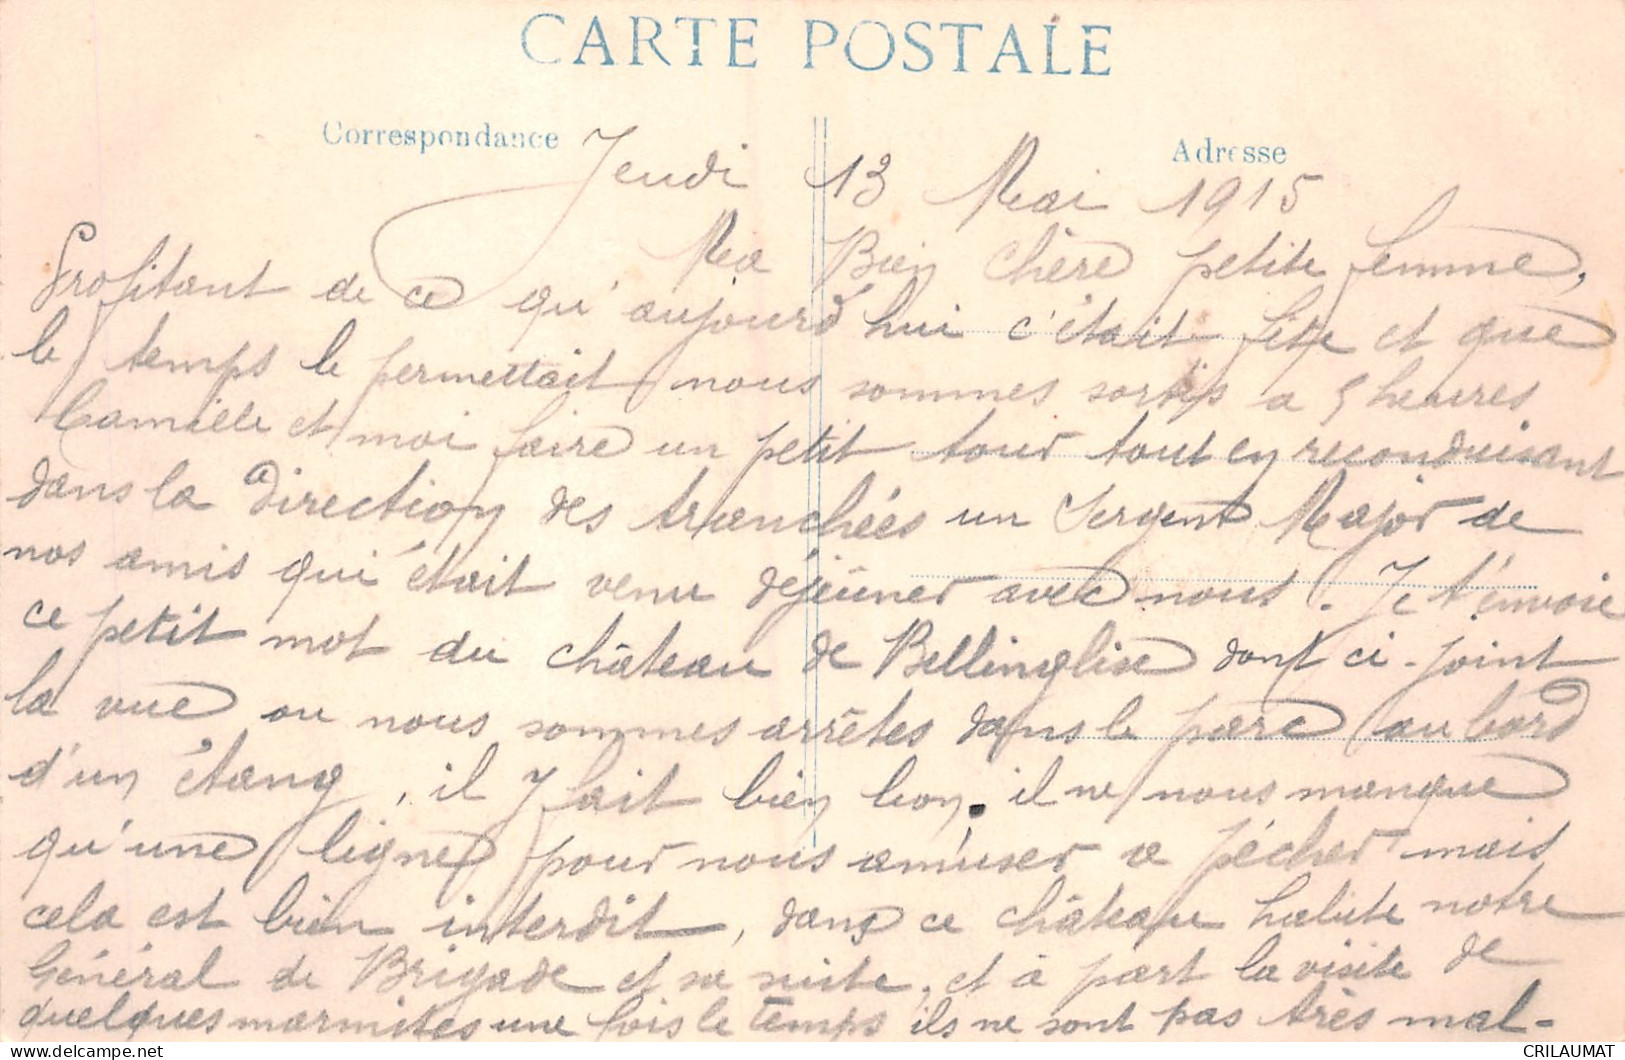 CARTE POSTALE
Correspondance
Adresse
Jeudi 13 Mai 1915
Ma Bien chère petite femme,
Profitant de ce qu'aujourd'hui c'était fête et que
le temps le permettait nous sommes sortis a 5 heures
Camille et moi faire un petit tour tout en reconduisant
dans la direction des tranchées un Sergent Major de
nos amis qui était venu déjeuner avec nous. Je t'envoie
ce petit mot du château de Bellinglise dont ci-joint
la vue ou nous sommes arrêtes dans le parc au bord
d'un étang, il y fait bien bon, il ne nous manque
qu'une ligne pour nous amuser a pécher mais
cela est bien interdit, dans ce château habite notre
Général de Brigade et sa suite, et à part la visite de
quelques marmites une fois le temps ils ne sont pas très mal-
CRILAUMAT
delcampe.net